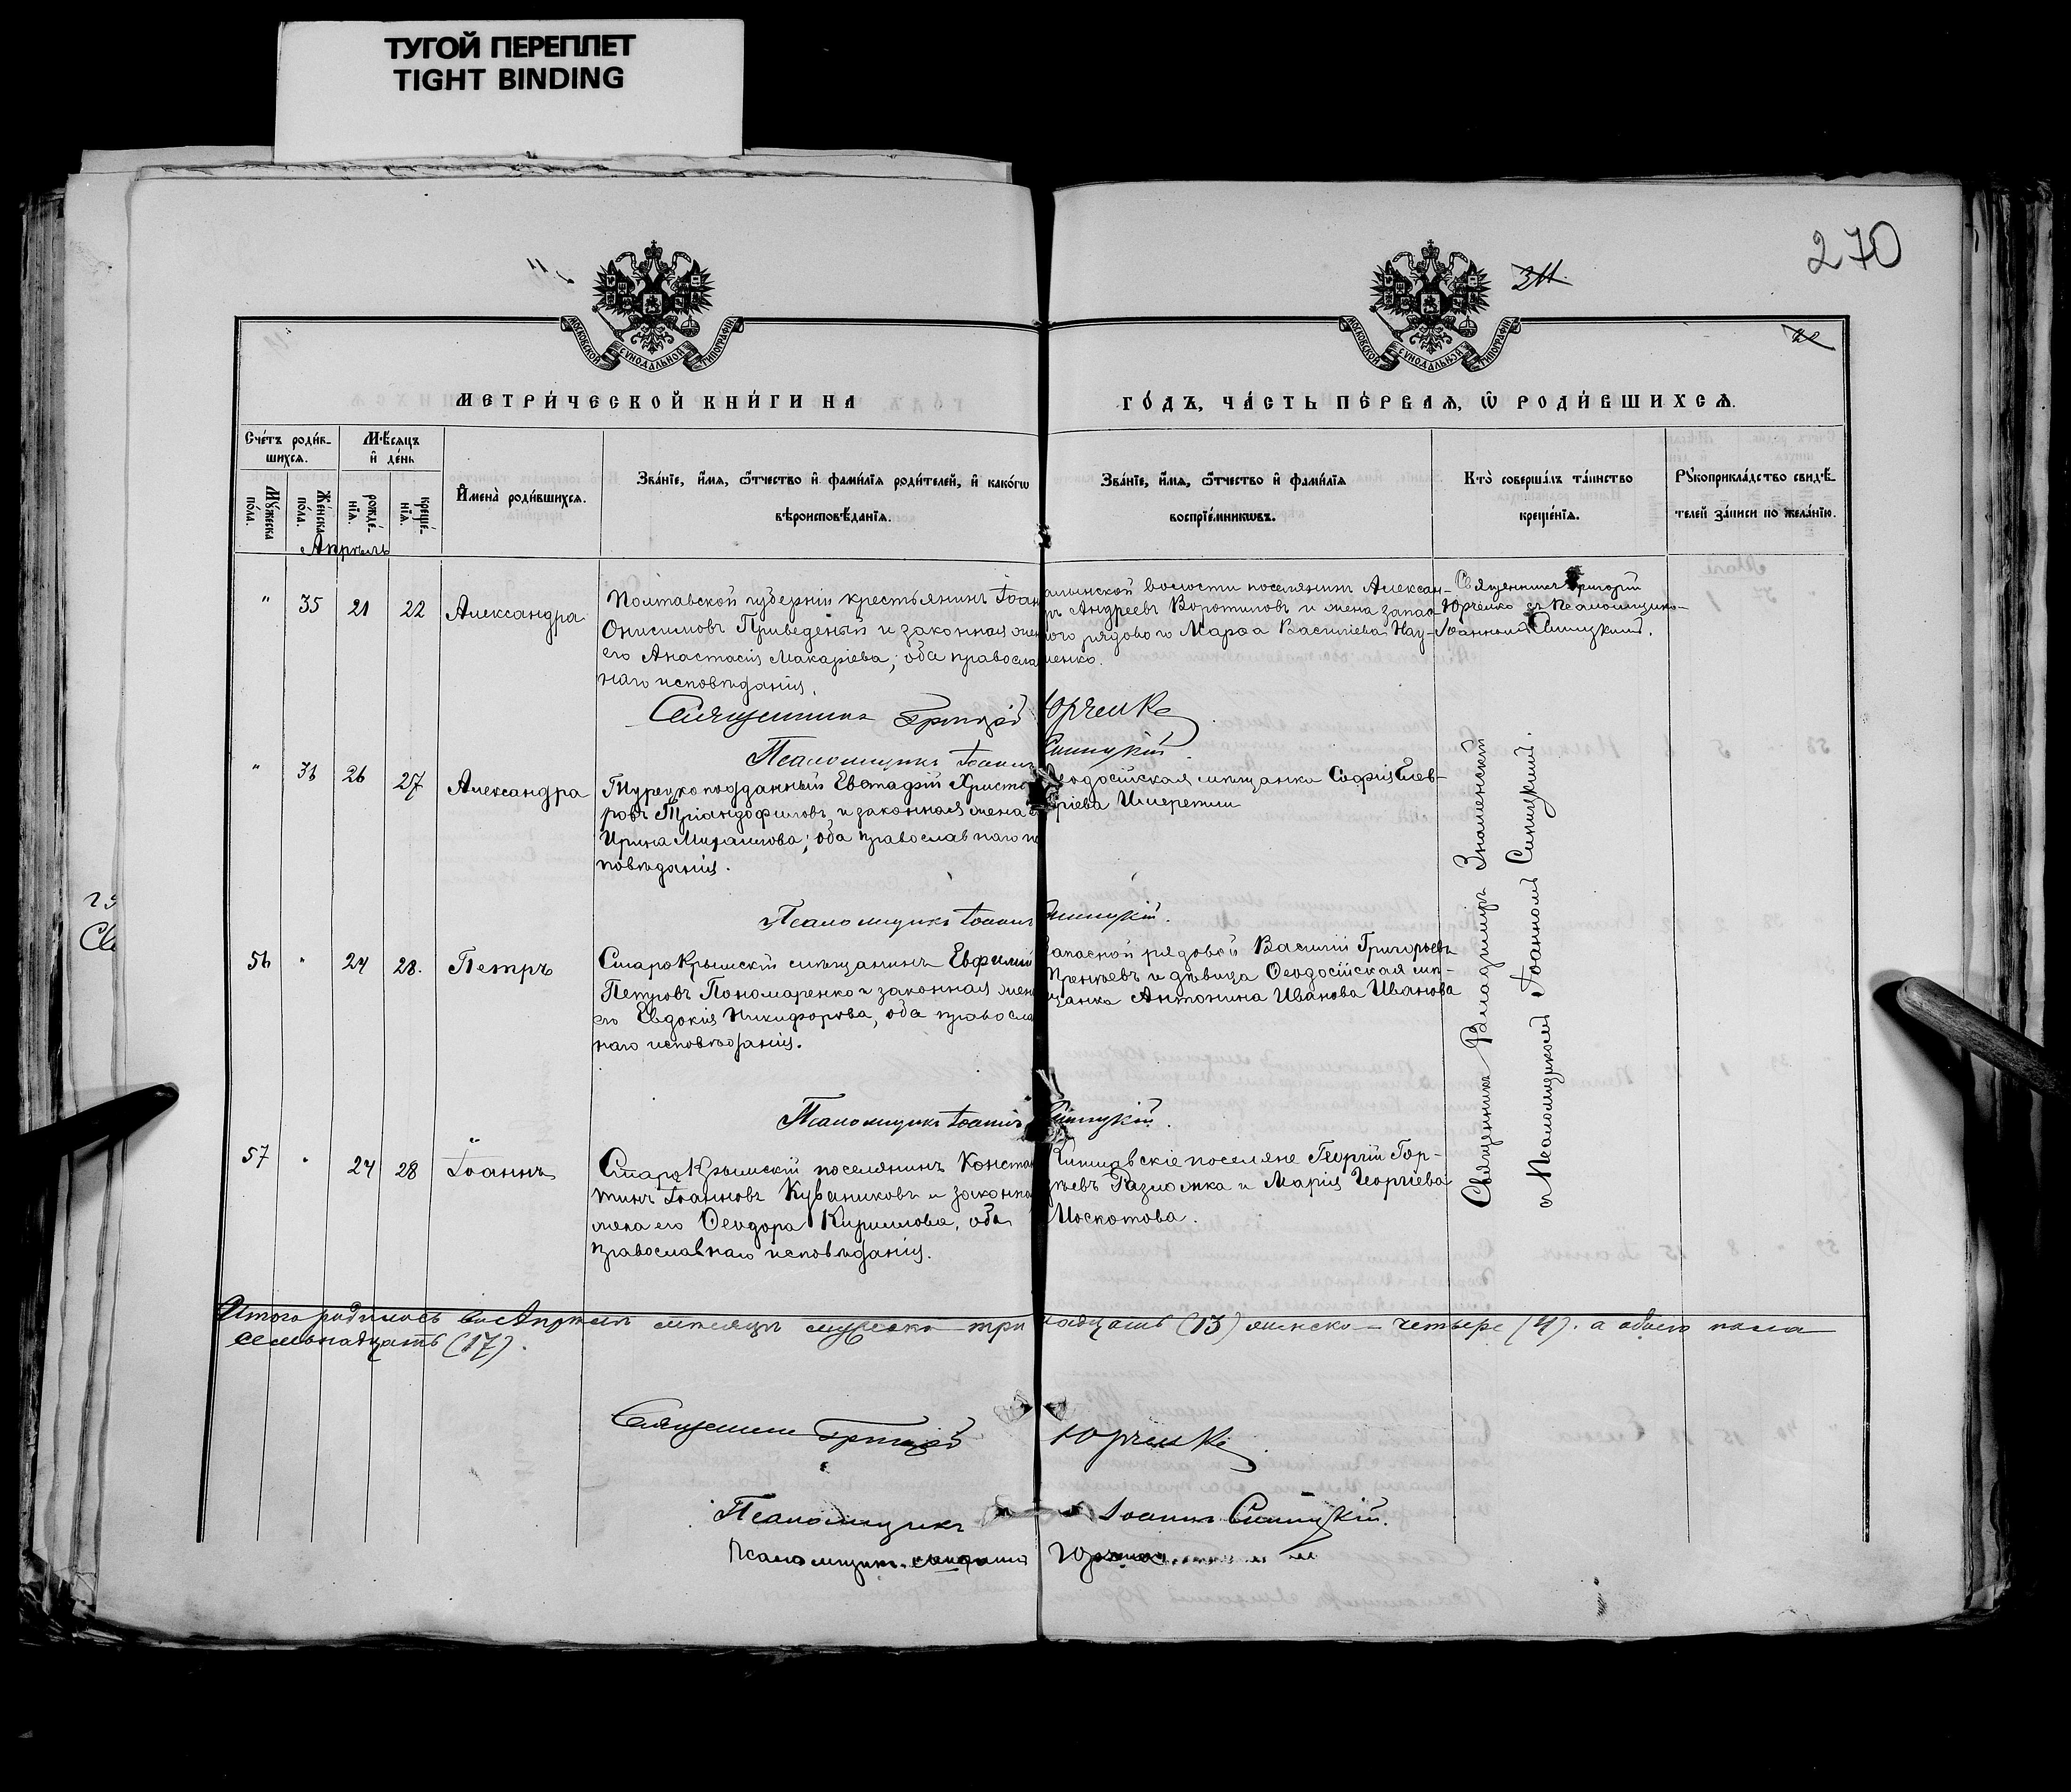 ТУГОЙ ПЕРЕПЛЕТ
TIGHT BINDING
270
311.
МОСКОВСКОЙ СУНОДАЛЬНОЙ ТИПОГРАФІИ
МОСКОВСКОЙ СУНОДАЛЬНОЙ ТИПОГРАФІИ
МЕТРИ́ЧЕСКОЙ КНИ́ГИ НА
ГО́ДЪ, ЧА́СТЬ ПЕ́РВАѦ, Ѡ҃ РОДИ́ВШИХСѦ.
Счётъ роди́в-
шихсѧ.
Мѣ́сяцъ
и҆ де́нь
Мꙋ́жеска
по́ла.
Же́нска
по́ла.
рожде́-
нїѧ.
креще́-
нїѧ.
И҆мена̀ роди́вшихсѧ.
Зва́нїе, и҆́мѧ, ѻ҆́тчество и҆ фами́лїѧ роди́телей, и҆ како́гѡ
вѣроисповѣ́данїѧ.
Зва́нїе, и҆́мѧ, ѻ҆́тчество и҆ фами́лїѧ
воспрїе́мникѡвъ.
Кто̀ соверша́лъ та́инство
креще́нїѧ.
Рꙋкоприкла́дство свидѣ́-
телей за́писи по жела́нїю.
Апрѣль
" 35 21 22 Александра
Полтавской губерніи крестьянинъ Іоан
Онисимовъ Приведеный и законная жен
его Анастасія Макаріева; оба правосла
наго исповѣданія.
волости поселянинъ Алексан-
ръ Андреевъ Воротиловъ и жена запас
ного рядового Марѳа Василіева Нау-
менко.
Священникъ Григорій
Юрченко съ Псаломщико-
Іоанномъ Синицкимъ.
Священникъ Григорій Юрченко
Псаломщикъ Іоаннъ Синицкій.
" 36 26 27 Александра
Турецкоподданный Евстафій Христо
ровъ Тріандофиловъ и законная жена е
Ирина Михаилова; оба православнаго ис
повѣданія.
Ѳеодосійская мѣщанка Софія Елев-
ріева Имеретли
Псаломщикъ Іоаннъ Синицкій.
56 " 24 28. Петръ
СтароКрымскій мѣщанинъ Евфимій
Петровъ Пономаренко и законная жен
его Евдокія Никифорова, оба правосла
наго исповѣданія.
Запасной рядовой Василій Григорьевъ
и дѣвица Ѳеодосійская мѣ-
щанка Антонина Иванова Иванова
Псаломщикъ Іоаннъ Синицкій.
57 " 24 28 Іоаннъ
СтароКрымскій поселянинъ Конста
тинъ Іоанновъ Кубаниковъ и законна
жена его Ѳеодора Кириллова, оба
православнаго исповѣданія.
Кишлавскіе поселяне Георгій Гор-
и Марія Георгіева
Москотова.
Священникъ Владимиръ Знаменскій
съ Псаломщикомъ Іоанномъ Синицкимъ.
Итого родилось въ Апрѣлѣ мѣсяцѣ мужеска – три надцать (13) женска – четыре (4). а обоего пола
семьнадцать (17).
Священникъ Григорій Юрченко
Псаломщикъ Іоаннъ Синицкій.
Псаломщикъ